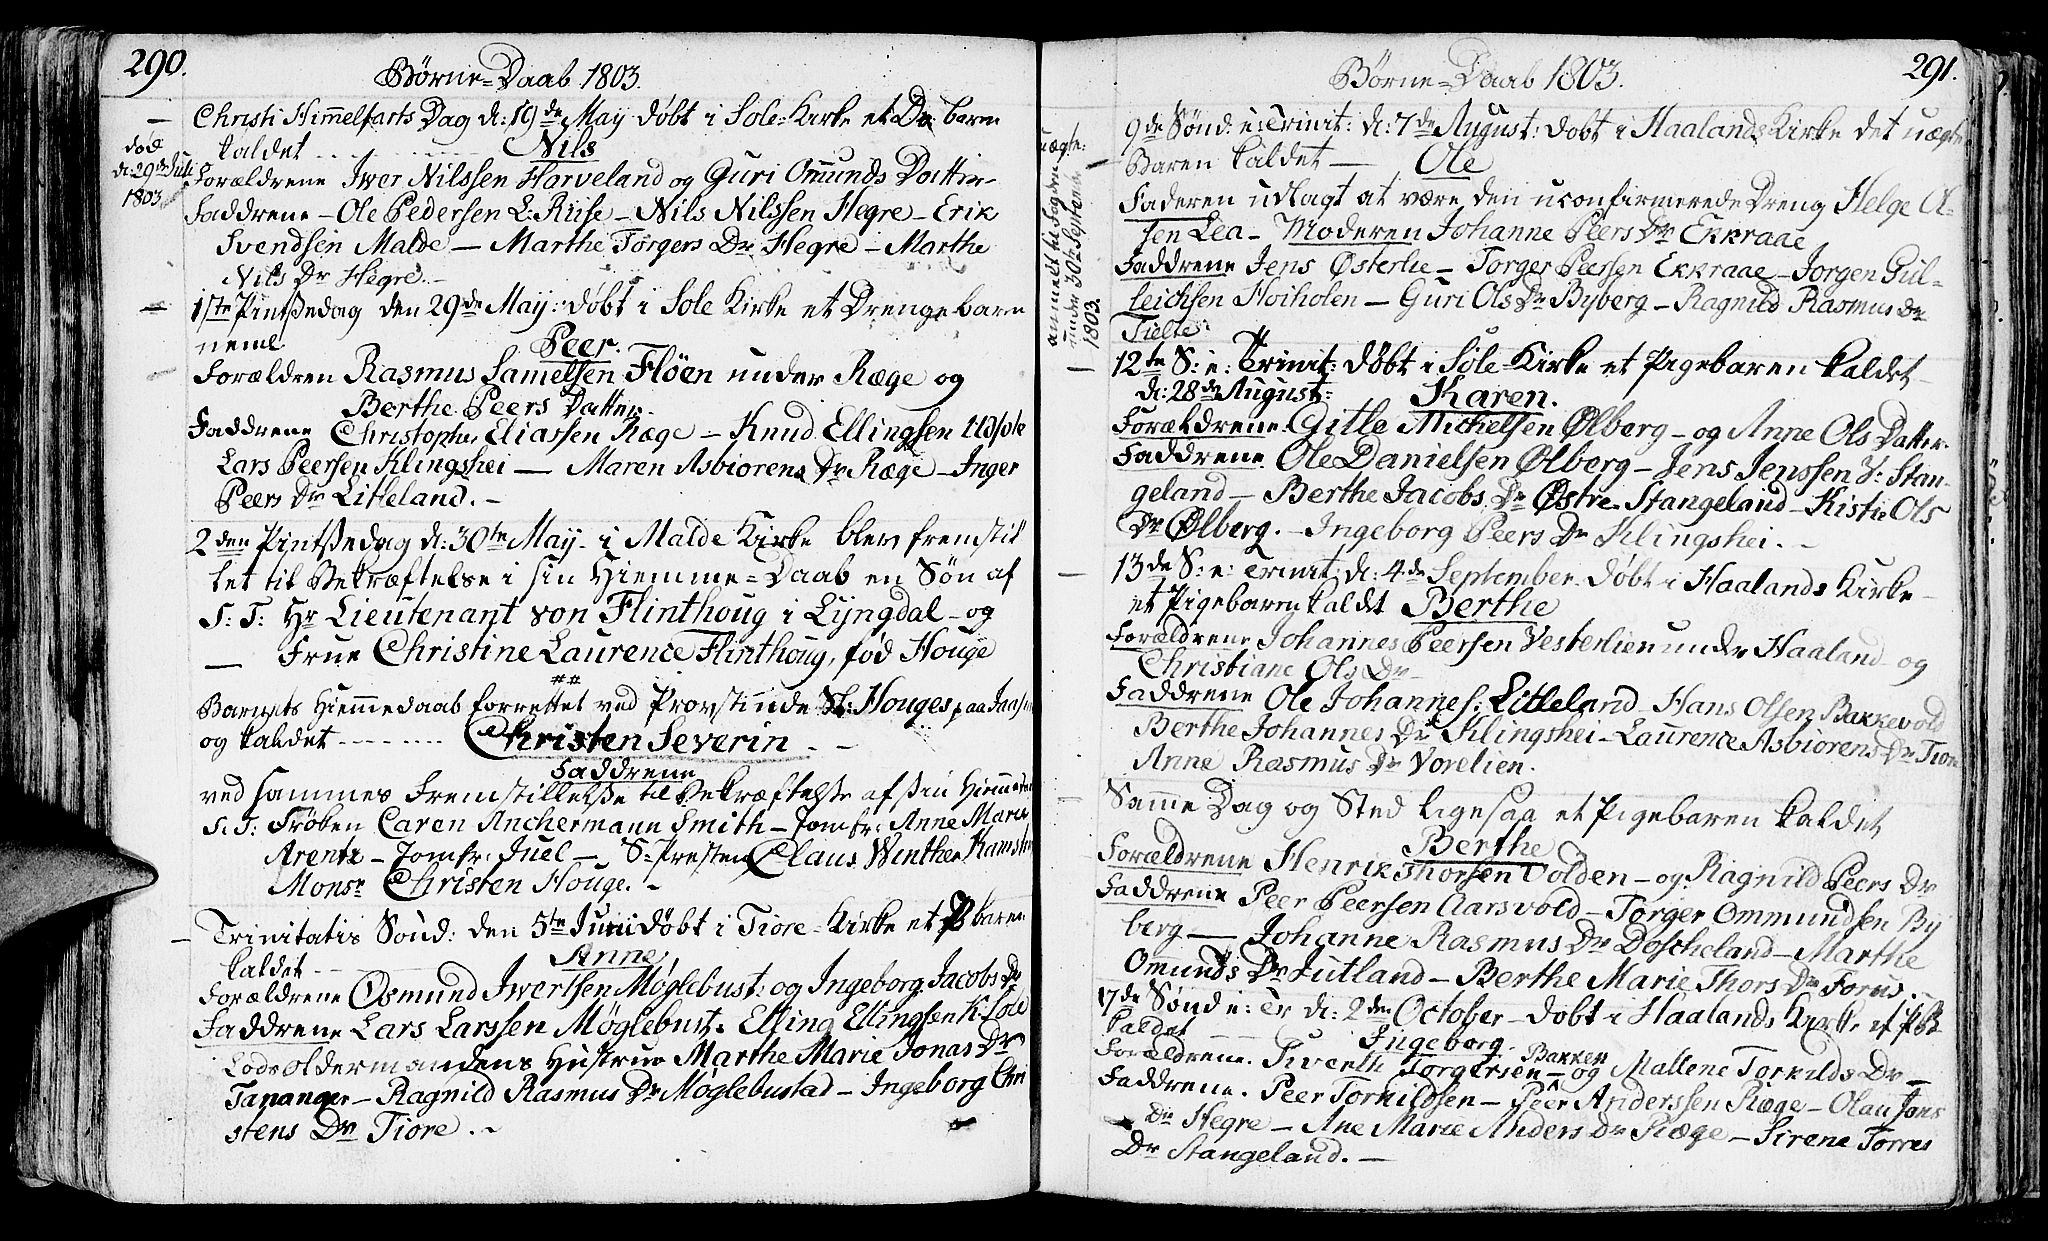 290.
Børne-Daab 1803.
Christi Himmelfarts Dag d: 19de May døbt i Sole-Kirke et Dr barn
kaldet Nils
død
d: 29de Juli
1803
Forældrene Iwer Nilssen Harveland og Guri Omunds Datter
Faddrene - Ole Pedersen L: Riise - Nils Nilssen Hegre - Erik
Svendsen Malde - Marthe Torgers Dr Hegre - Marthe
Nils Dr Hegre. -
1ste Pintsedag den 29de May: døbt i Sole Kirke et Drengebarn
neml Peer.
Forældren Rasmus Samelsen Fløen under Ræge og
Berthe Peers Datter.
Faddrene Christopher Eliassen Ræge - Knud Ellingsen Udsole
Lars Peersen Klingshei - Maren Asbiorens Dr Ræge - Inger
Peers Dr Litleland. -
2den Pintsedag d: 30te May i Malde Kirke blev fremstil
let til Bekræftelse i sin Hiemme-Daab en Søn af
S: T: Hr Lieutenant von Flinthoug i Lyngdal - og
Frue Christine Laurence Flinthoug, fød Houge
Barnets Hiemmedaab forrettet ved Provstinde Sl: Houges paa
og kaldet Christen Severin. -
Faddrene
ved sammes Fremstillelse til Bekræftelse af sin
S: T: Frøken Caren Anchermann Smith - Jomfr: Anne Marie
Arentz - Jomfr: Juel - S: Presten Claus Winther
Monsr Christen Houge. -
Trinitatis Sønd: den 5te Juni døbt i Tiore-Kirke et P barn
kaldet Anne
Forældrene Osmund Iwersen Møglebust: og Ingeborg Jacobs Dr
Faddrene Lars Larssen Møglebust. Elling Ellingsen K: Sole
Lods Oldermandens Hustrue Marthe Marie Jonas Dr
Tananger - Ragnild Rasmus Dr Møglebustad - Ingeborg Chri
stens Dr Tiore. -
Børne-Daab 1803.
291.
9de Sønd: e: Trinit: d: 7de August: døbt i Haalands Kirke det uægte
Baren kaldet - Ole
uægte:
anmeldt til Fogden
under 30te September
1803.
Faderen udlagt at være den uconfirmerede Dreng Helge Ol-
sen Lea - Moderen Johanne Peers Dr Ekkraae
Faddrene Jens Østerlie - Torger Peersen Ekkraae - Jorgen Gul-
leichsen Hoiholen - Guri Ols Dr Byberg - Ragnild Rasmus Dr
Tielle
12te S: e: Trinit: døbt i Sole-Kirke et Pigebaren kaldet
d: 28de August: Karen.
Forældrene Gitle Michelsen Ølberg - og Anne Ols Datter.
Faddrene Ole Danielsen Ølberg - Jens Jenssen V: Stan-
geland - Berthe Jacobs Dr Østre Stangeland - Kistie Ols
Dr Ølberg. - Ingeborg Peers Dr Klingshei. -
13de S: e: Trinit: d: 4de September døbt i Haalands Kirke
et Pigebaren kaldet Berthe
Forældrene Johannes Peersen Vesterlien under Haaland og
Christiane Ols Dr
Faddrene Ole Johannes: Litleland - Hans Olsen Bakkevold
Berthe Johannes Dr Klingshei - Laurence Asbiorens Dr Tiore
Anne Rasmus Dr Vorelien.
Samme Dag og Sted ligesaa et Pigebaren kaldet
Berthe
Forældrene Henrik Thorsen Volden - og Ragnild Peers Dr
Faddrene Peer Peersen Aarsvold - Torger Ommundsen By
berg - Johanne Rasmus Dr - Marthe
Omunds Dr Jutland - Berthe Marie Thors Dr Forus. -
17de Sønd e: Tr d: 2den October - døbt i Haalands Kirke et PB
kaldet Ingeborg.
Forældrene. Siverth Torgersen Bakken - og Mallene Torkilds Dr -
Faddrene. Peer Torkildsen - Peer Anderssen Ræge - Olau Jons
Dr Hegre - Ane Marie Anders Dr Ræge - Sirene Torres
Dr Stangeland. -